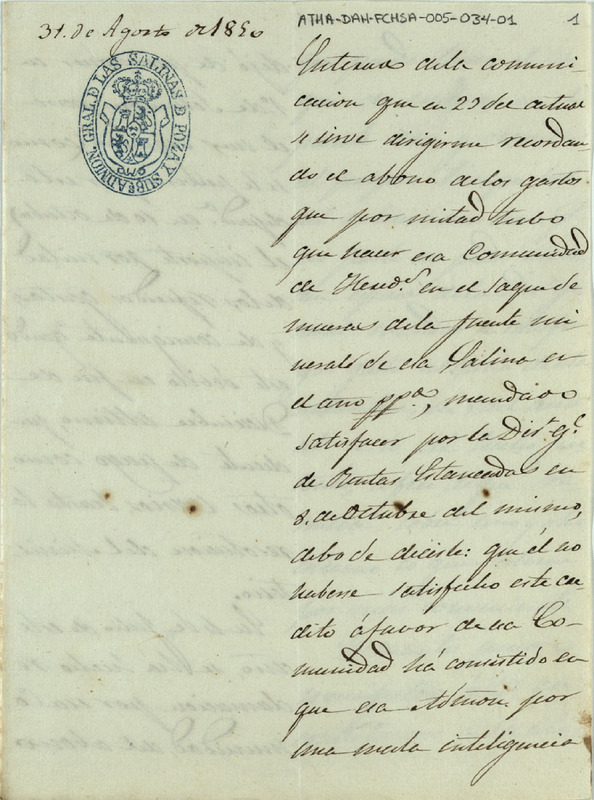 31. de Agosto de 1850
ATHA-DAH-FCHSA-005-034-01
1
ADMON. GRAL. D LAS SALINAS D POZA Y SUBS
Enterado de la comuni-
cacion que en 23 del actual
se sirve dirigirme recordan
do el abono de los gastos
que por mitad tubo
que hacer esa Comunidad
de Hered.s en el saque de
mueras de la fuente mi
neral de esa Salina en
el año pp.o, mandado
satisfacer por la Dir.n g.l
de Rentas Estancadas en
8. de Octubre del mismo,
debo de decirle: que el no
haberse satisfecho este cre
dito á favor de esa Co-
munidad há consistido en
que esa Admon. por
una mala inteligencia